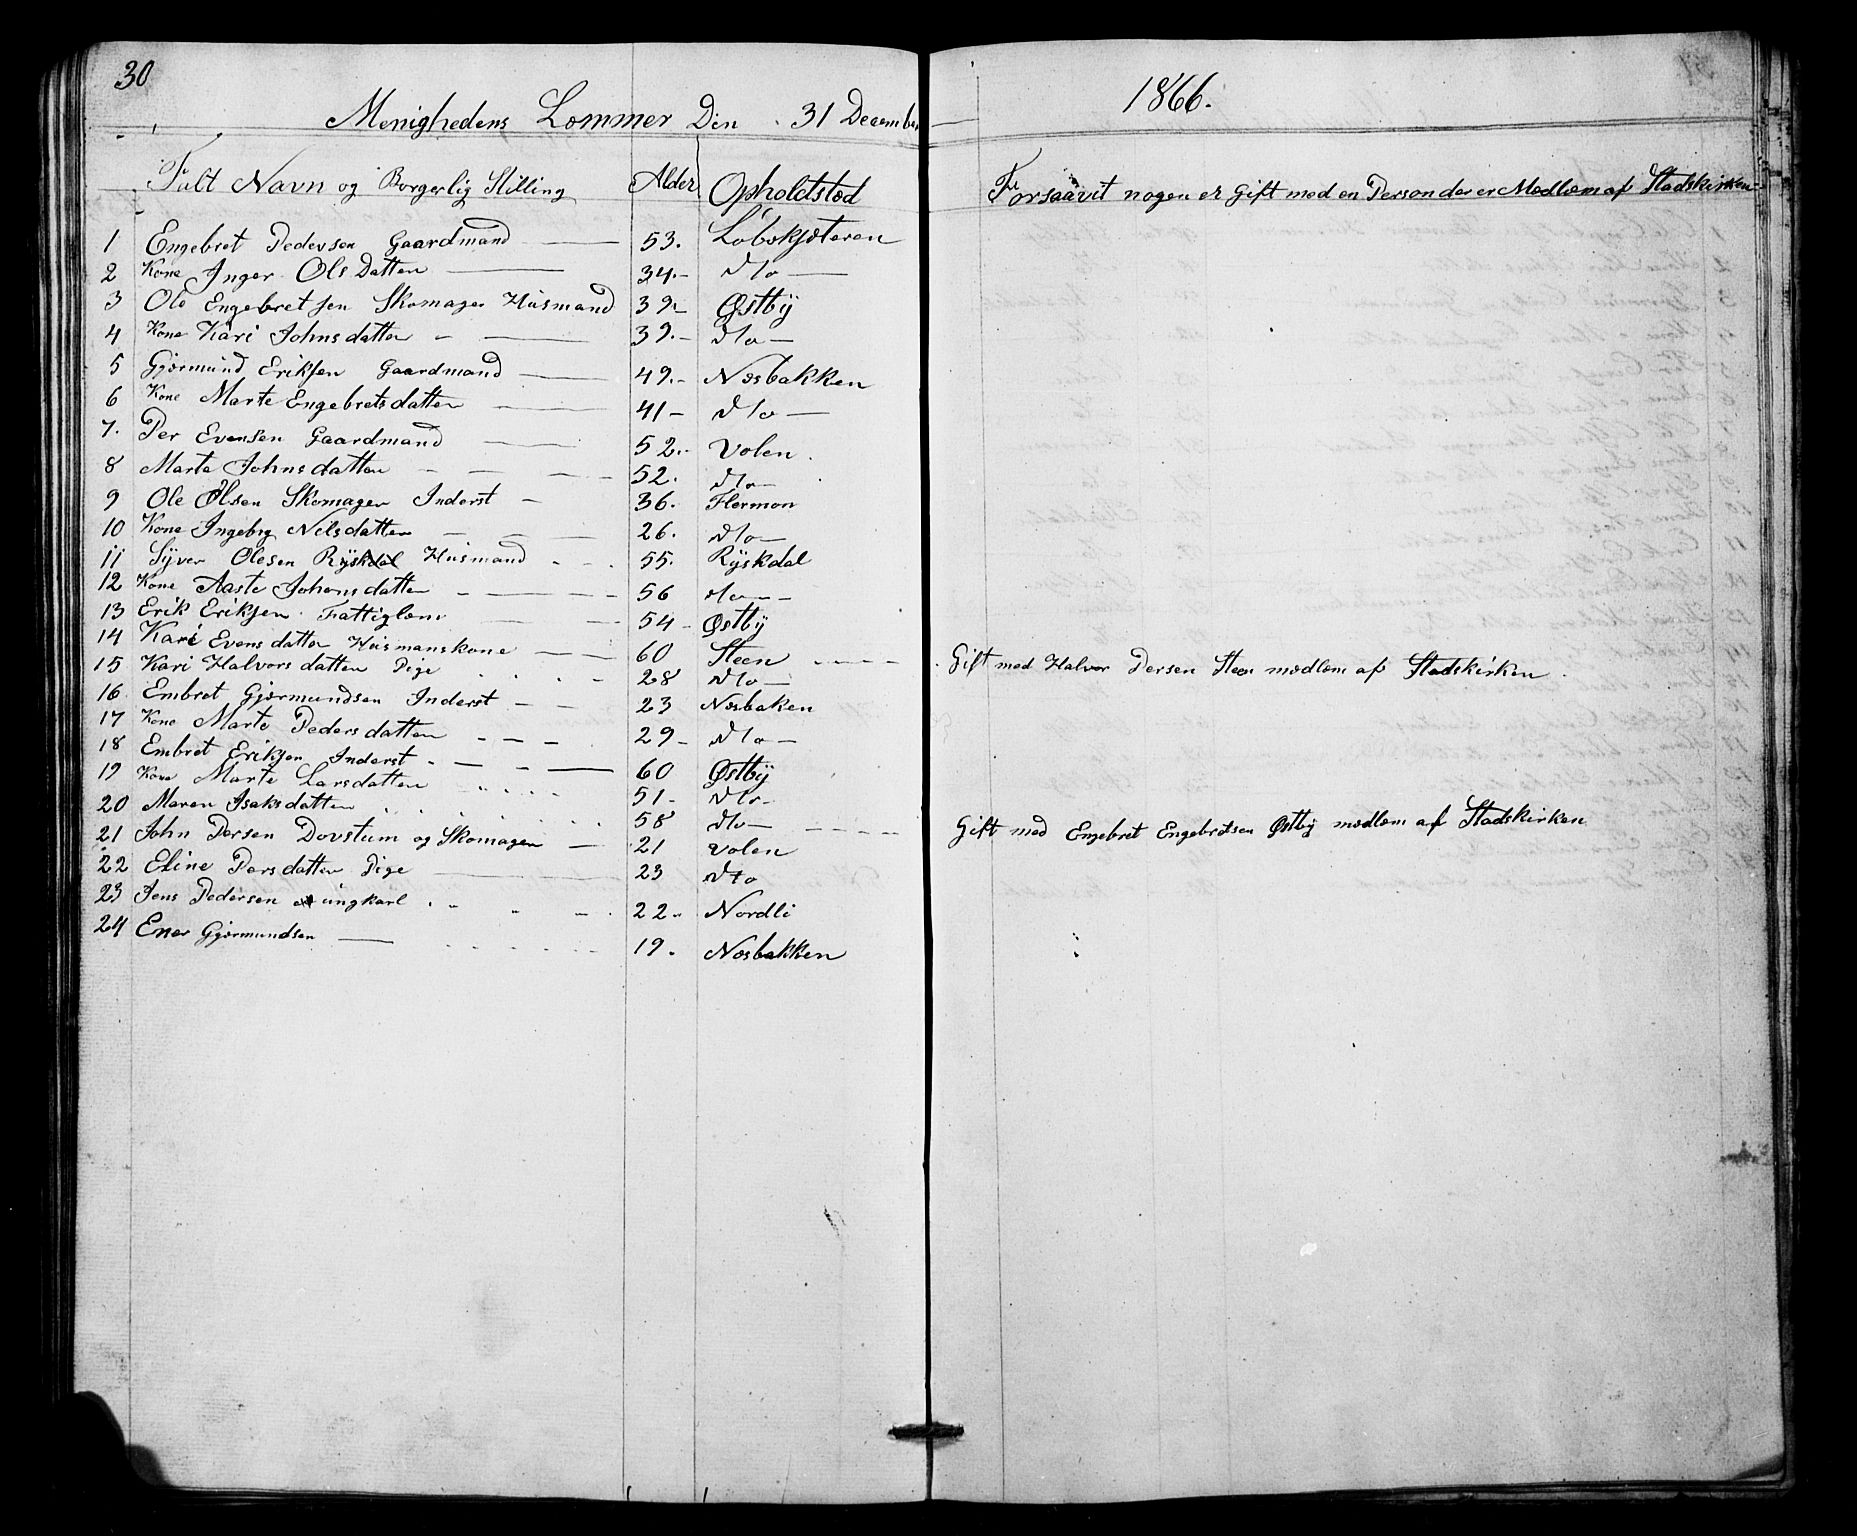 30
Menighedens Lemmer Den 31 December 1866.
Fult Navn og Borgerlig Stilling Alder Opholdsted Forsaavit nogen er Gift med en Person der er Medlem af Stadskirken
1 Engebret Pedersen Gaardmand 53. Løbsksæteren
2 Kone Inger Ols Datter 34. Dto
3 Ole Engebretsen Skomager Husmand 39 Østby
4 Kone Kari Johnsdatter 39. Dto
5 Gjermund Eriksen Gaardmand 49. Nesbakken
6 Kone Marte Engebretsdatter 41 Dto
7. Per Evensen Gaardmand 52. Volen
8 Marte Johnsdatter 52. Dto
9 Ole Olsen Skomager Inderst 36. Flermon
10 Kone Ingebrg Nilsdatter 26. Dto
11 Syver Olesen Ryskdal Husmand 55. Ryskdal
12 Kone Aaste Johansdatter 56 Dto
13 Erik Eriksen Fattiglem 54 Østby
14 Kari Evensdatter Husmanskone 60 Steen Gift med Halvor Persen Steen medlem af Stadskirken
15 Kari Halvorsdatter Pige 28 Dto
16 Embret Gjermundsen Inderst 23 Nesbaken
17 Kone Marte Pedersdatter 29 Dto
18 Embret Eriksen Inderst 60 Østby
19 Kone Marte Larsdatter 51 Dto
20 Maren Isaksdatter 58 Dto Gift med Engebret Engebretsen Østby medlem af Stadskirken
21 John Persen Dovstum og Skomager 21 Volen
22 Eline Persdatter Pige 23 Dto
23 Jens Pedersen ungkarl 22 Nordli
24 Ener Gjermundsen 19. Nesbakken